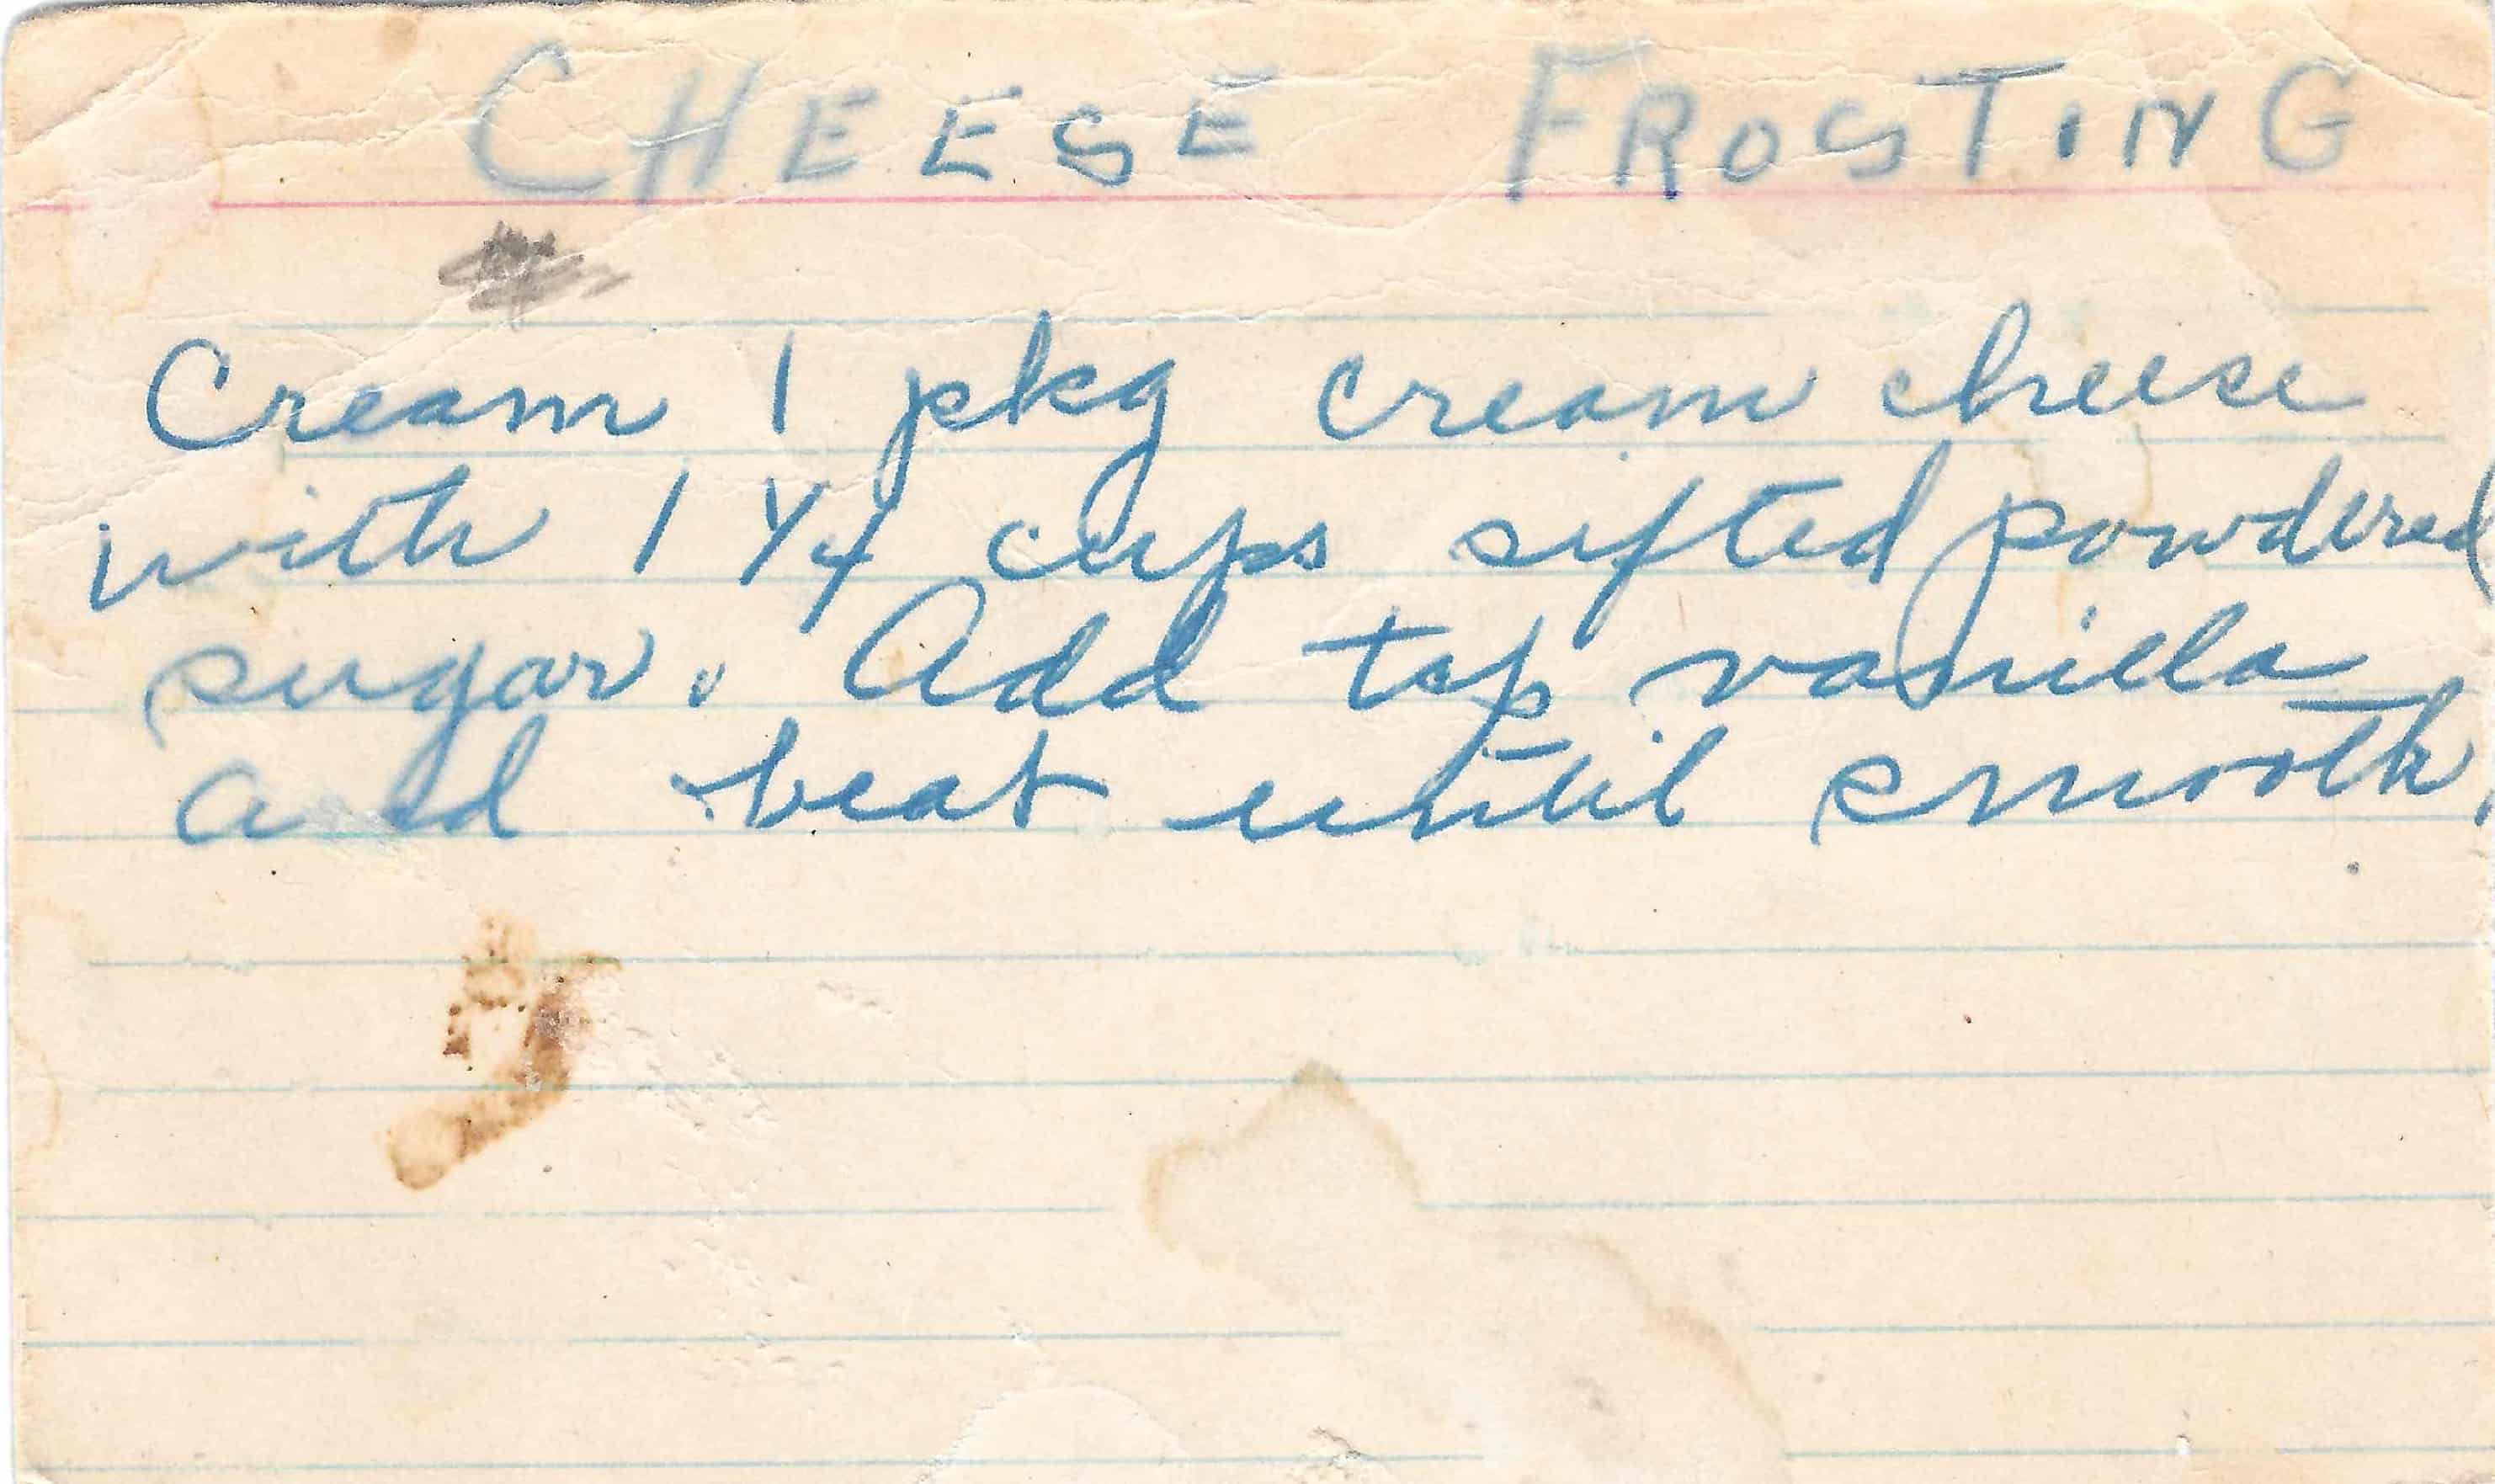 CHEESE FROSTING
Cream 1 pkg cream cheese
with 1 1/4 cups sifted powdered
sugar. Add tsp vanilla
and beat until smooth.